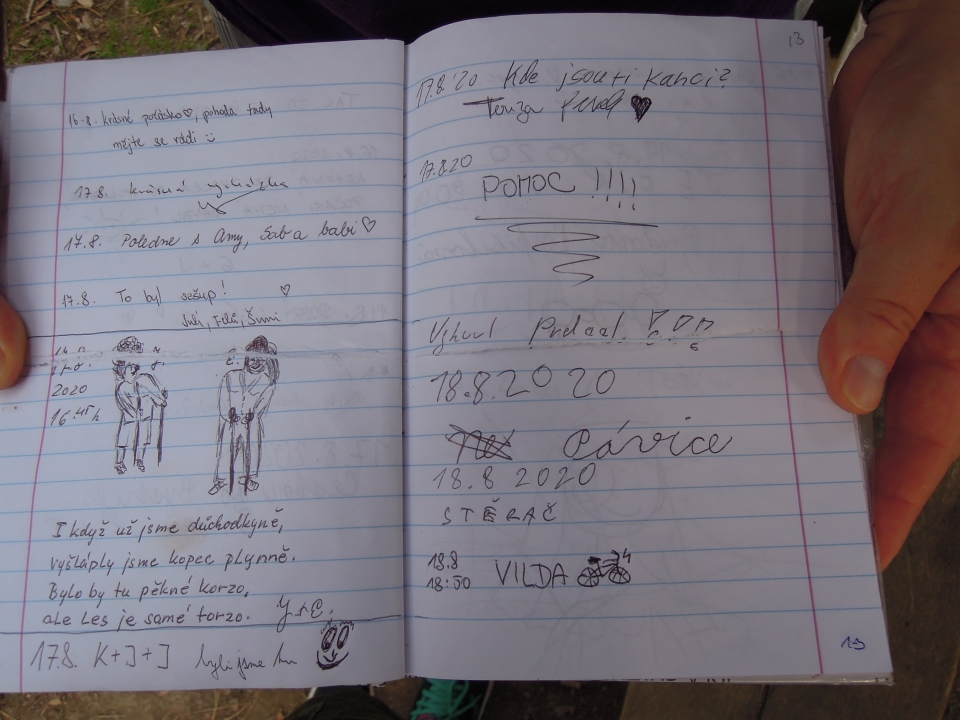 16.8. Krásné počásko♡, pohoda tady
mějte se rádi
17.8. krásná vycházka
17.8. Poledne s Amy, Sab a babi ♡
17.8. To byl sešup! ♡
Fíla, Šimi
17.8.
2020
16.45 h
I když už jsme důchodkyně,
vyšláply jsme kopec plynně.
Bylo by tu pěkné korzo,
ale les je samé torzo.
17.8. K+J+J byli jsme tu
13
17.8.'20 Kde jsou ti kanci?
Teruza
17.8.20
POMOC !!!!
18.8.2020
Pávice
18.8 2020
STĚRAČ
18.8
18:50 VILDA
13